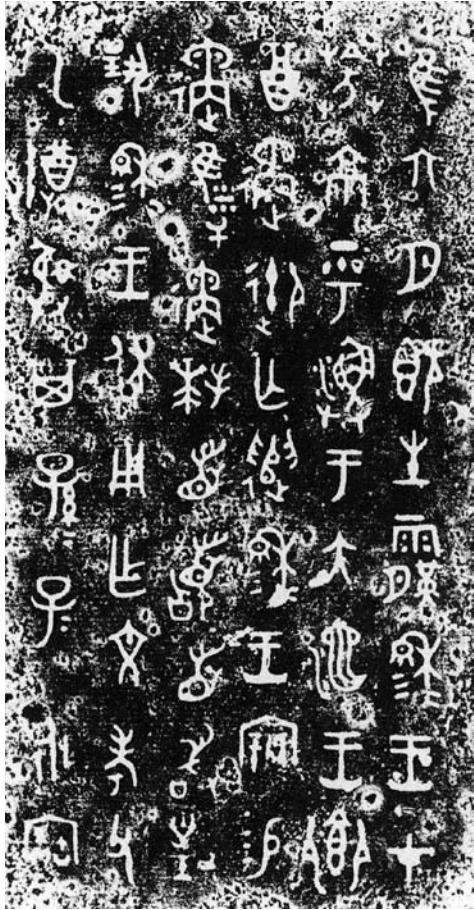 隹六月既生霸穆王才
葊京乎漁于大池王鄉
酉遹御亡遣穆王寴易
遹遹拜首𩒨首敢對
揚穆王休用乍文考父
乙尊彝其孫=子=永寶